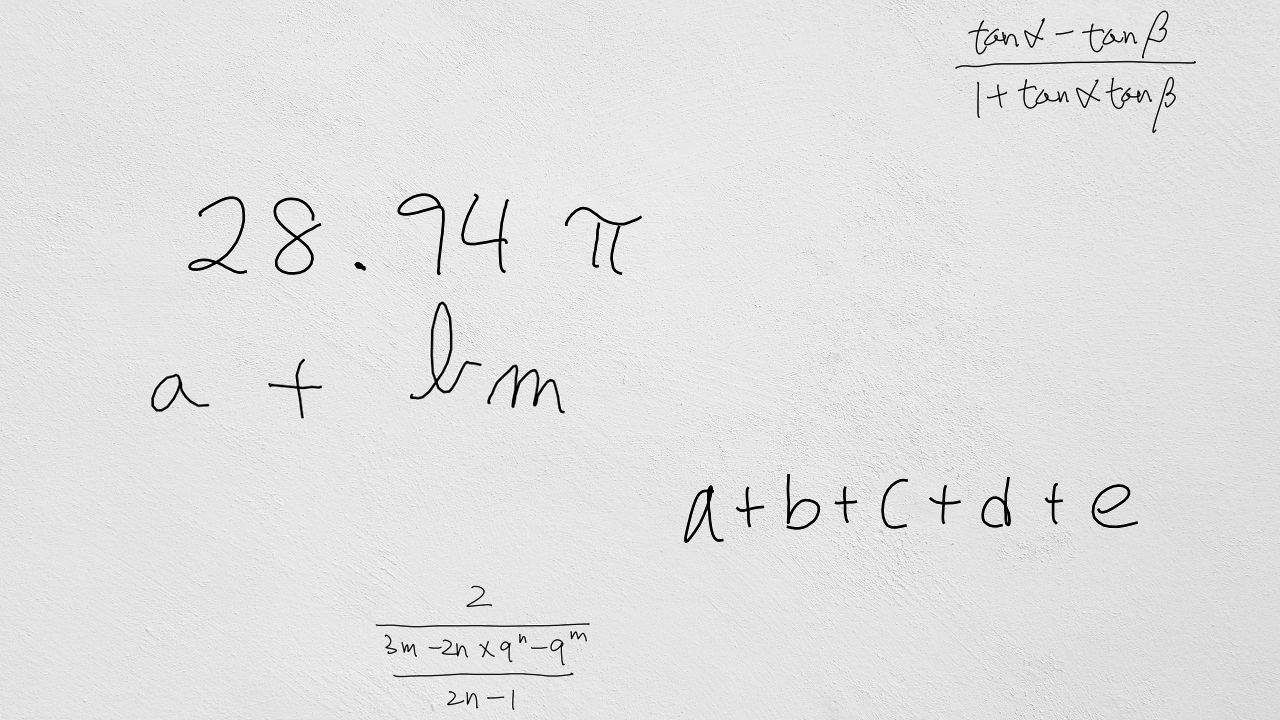 \frac{\tan\alpha - \tan\beta}{1 + \tan\alpha\tan\beta}
28.94 π
a + bm
a+b+c+d+e
\frac{2}{\frac{3m-2n×9^n-9^m}{2n-1}}